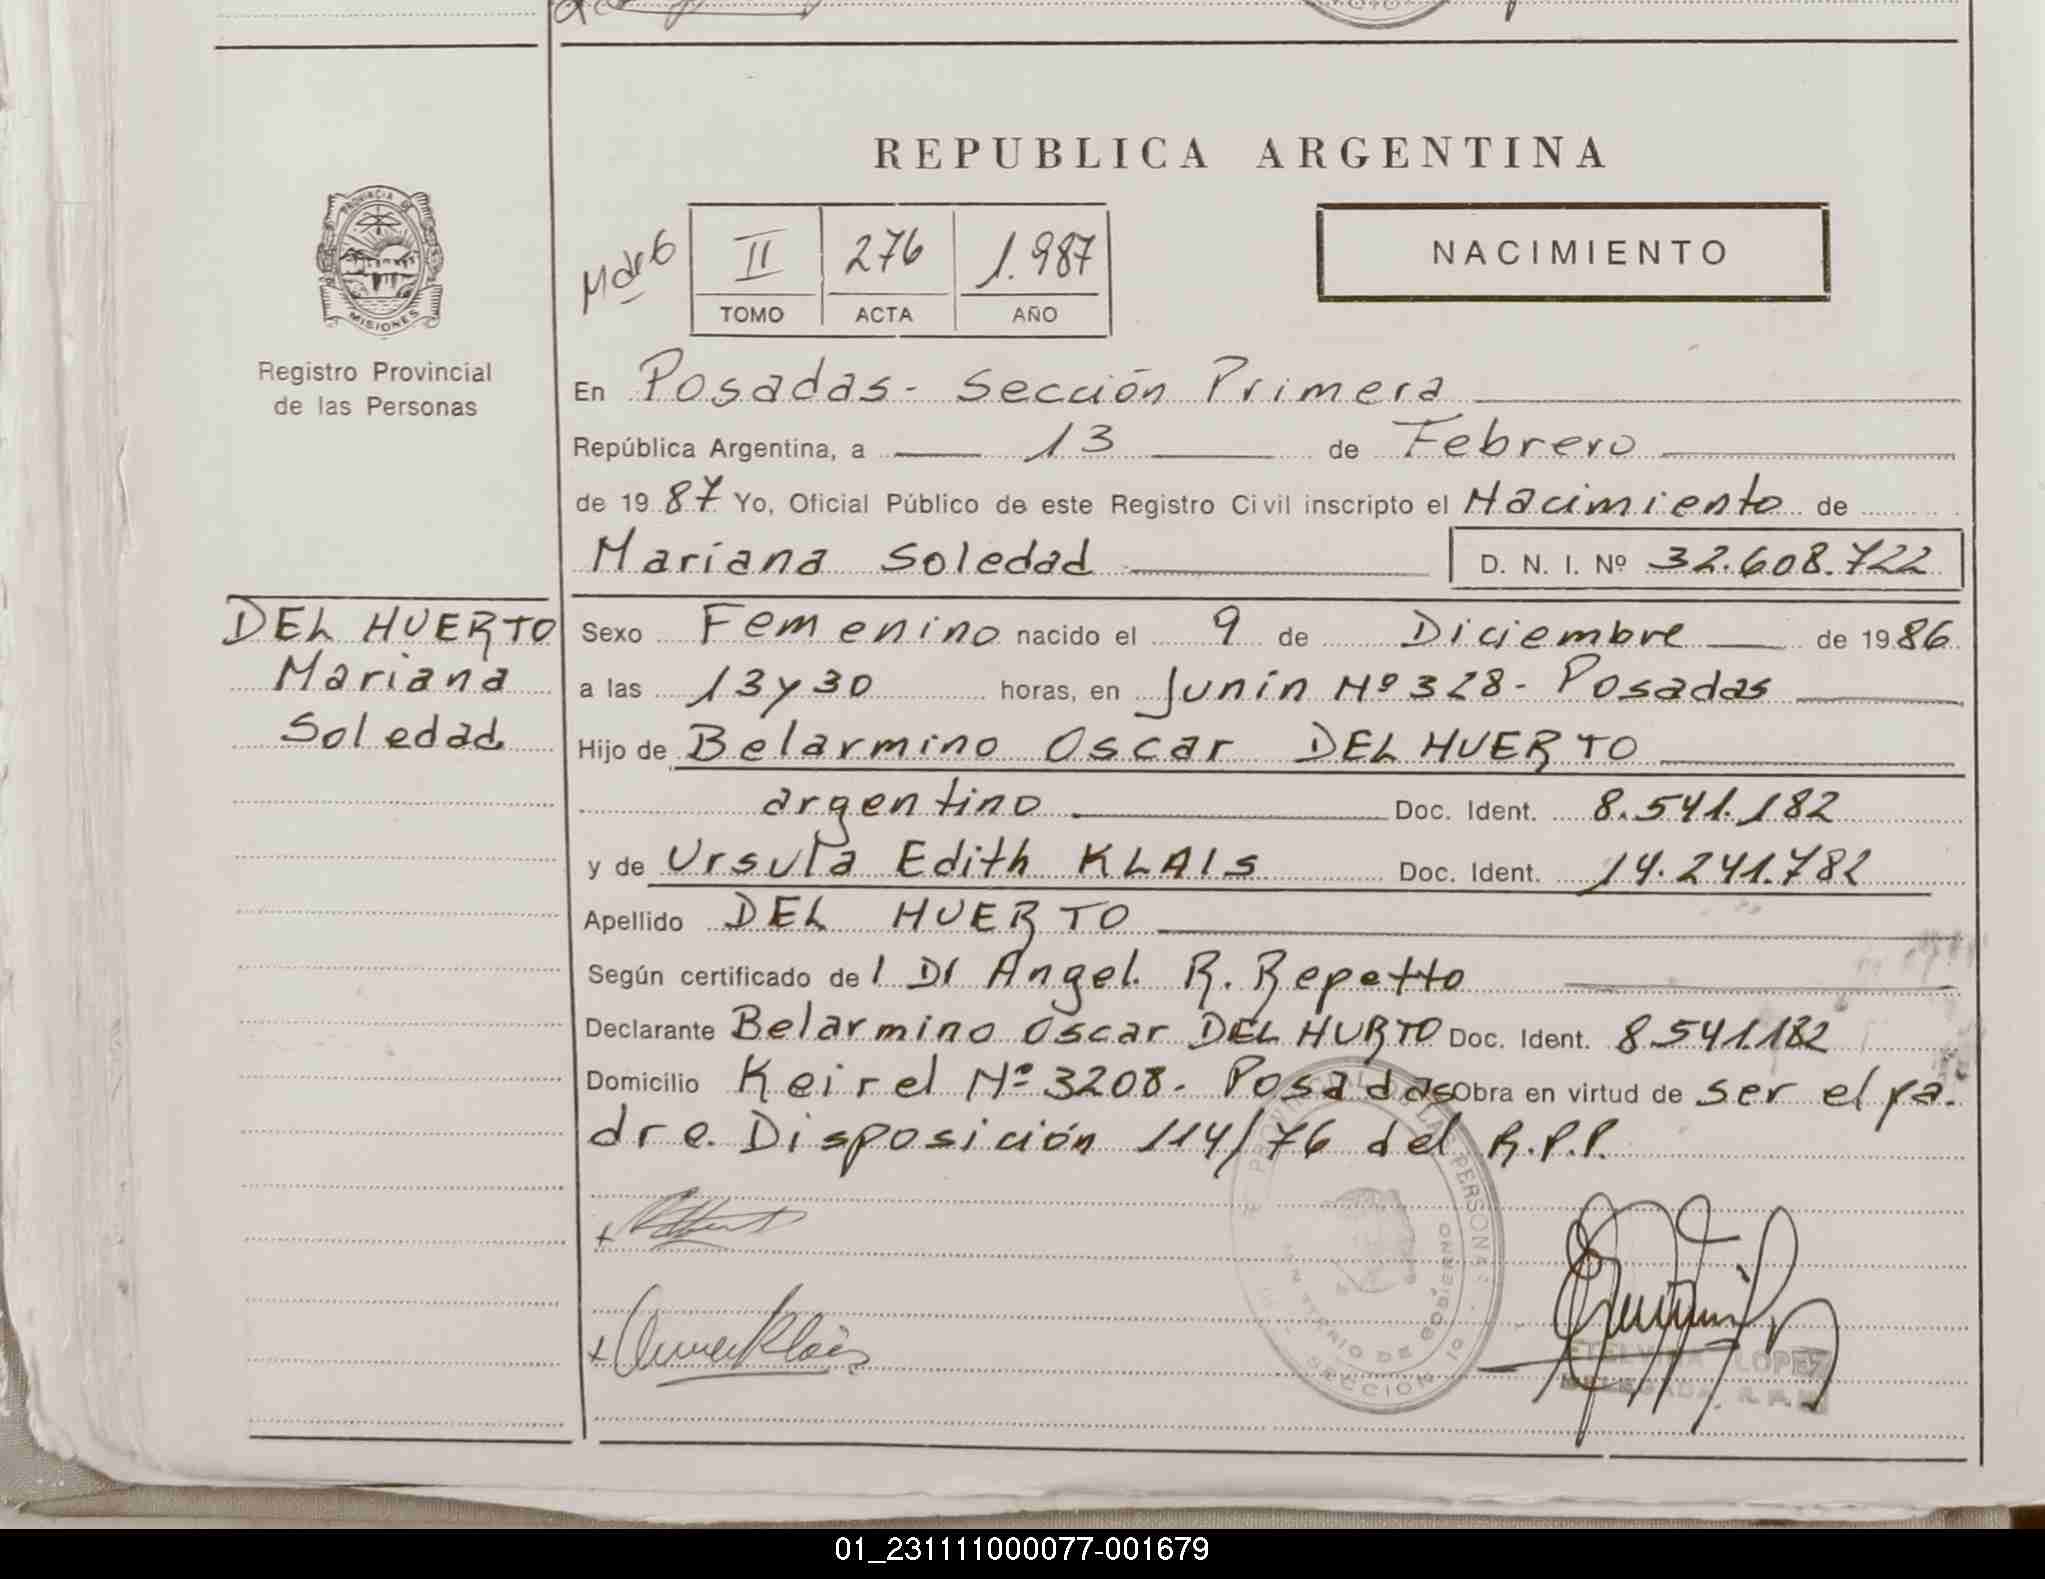 REPUBLICA ARGENTINA
PROVINCIA DE
MISIONES
Registro Provincial
de las Personas
II 276 1.987
TOMO ACTA AÑO
NACIMIENTO
En Posadas - Sección Primera
República Argentina, a 13 de Febrero
de 1987 Yo, Oficial Público de este Registro Civil inscripto el Nacimiento de
Mariana Soledad D. N. I. Nº 32.608.722
DEL HUERTO
Mariana
Soledad
Sexo Femenino nacido el 9 de Diciembre de 1986
a las 13 y 30 horas, en Junín Nº 328 - Posadas
Hijo de Belarmino Oscar DEL HUERTO
argentino Doc. Ident. 8.541.182
y de Ursula Edith KLAIS Doc. Ident. 14.241.782
Apellido DEL HUERTO
Según certificado del Dr Angel R. Repetto
Declarante Belarmino Oscar DEL HURTO Doc. Ident. 8.541.182
Domicilio Keirel Nº 3208 - Posadas Obra en virtud de ser el pa-
dre. Disposición 114/76 del R.P.P.
PROVINCIAL DE LAS PERSONAS
MINISTERIO DE GOBIERNO
SECCION 1º
ETELVINA LOPEZ
DELEGADA
01_231111000077-001679